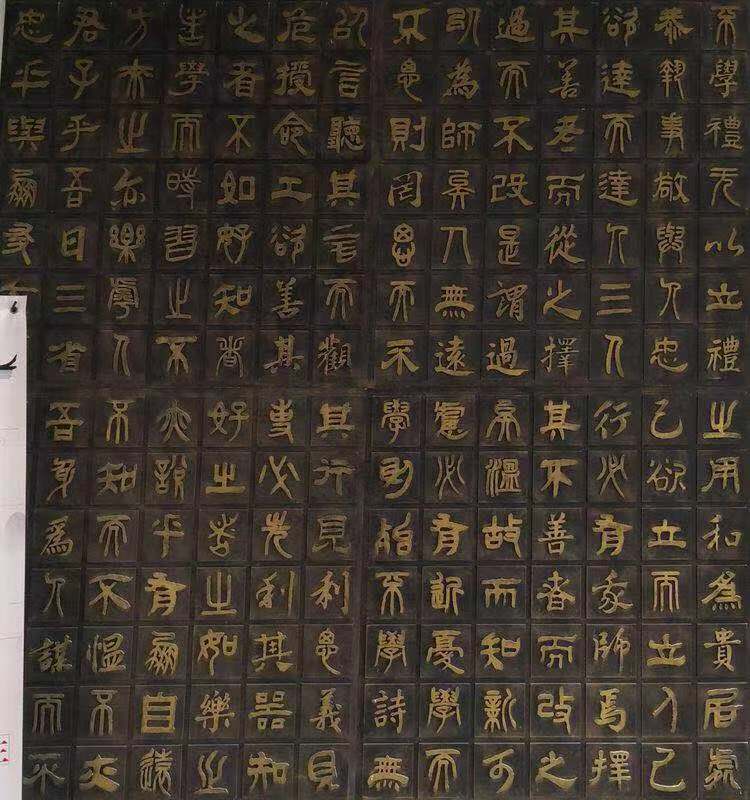 不學禮无以立禮之用和為貴居處
恭執事敬與人忠己欲立而立人己
欲達而達人三人行必有我師焉擇
其善者而從之擇其不善者而改之
過而不改是謂過矣溫故而知新可
以為師矣人無遠慮必有近憂學而
不思則罔思而不學則殆不學詩無
以言聽其言而觀其行見利思義見
危授命工欲善其事必先利其器知
之者不如好知者好之者不如樂之
者學而時習之不亦說乎有朋自遠
方來不亦樂乎人不知而不慍不亦
君子乎吾日三省吾身為人謀而不
忠乎與朋友